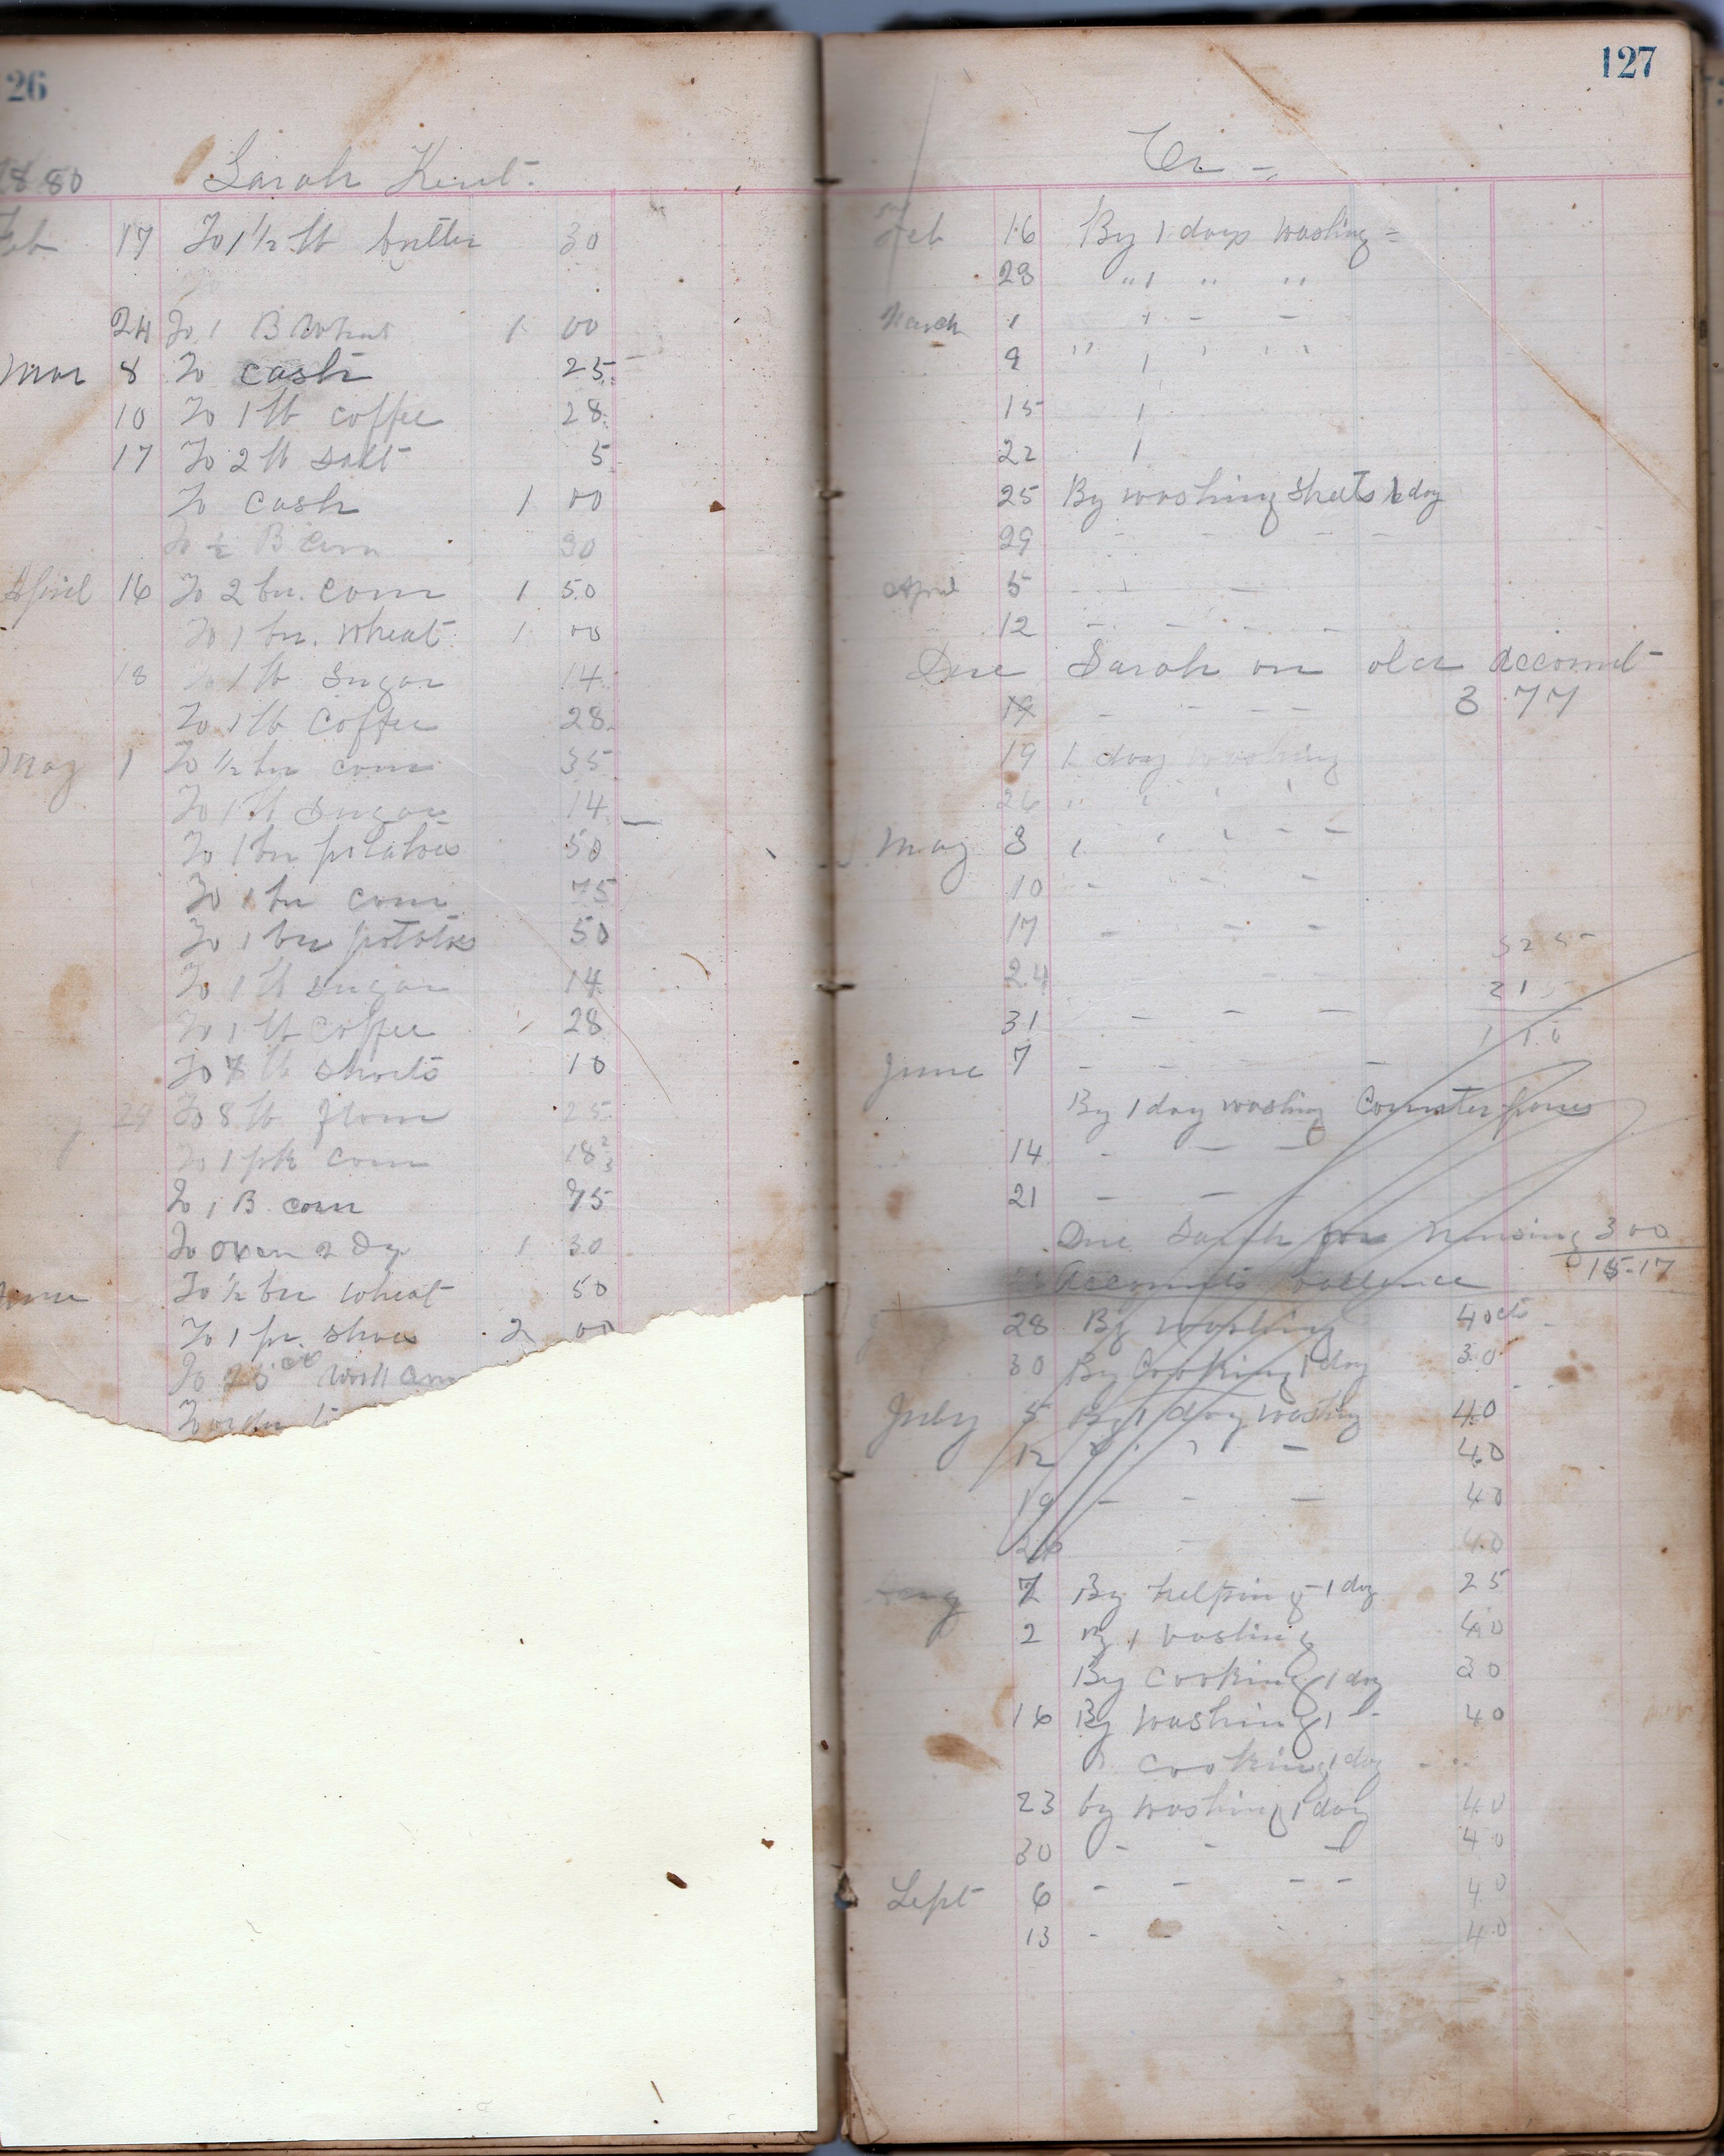 126
1880 Sarah Kent.
Feb 17 To 1 1/2 lb butter 30
24 To 1 B Wheat 1 00
Mar 8 To cash 25
10 To 1 lb coffee 28
17 To 2 lb salt 5
To cash 1 00
To 1/2 B corn 30
April 16 To 2 bu. corn 1 50
To 1 bu. wheat 1 00
18 To 1 lb sugar 14
To 1 lb coffee 28
May 1 To 1/2 bu corn 35
To 1 lb sugar 14
To 1 bu potatoes 50
To 1 bu corn 75
To 1 bu potatoes 50
To 1 lb sugar 14
To 1 lb coffee 28
To lb shorts 10
To 8 lb flour 25
To 1 pk corn 18
To 1 B. corn 75
To oxen 2 Dy 1 30
June To 1/2 bu wheat 50
To 1 pr. shoes 2 00
To
To order to
127
Cr
Feb 16 By 1 days washing
23 " 1 " "
March 1 1 - -
9 " 1 " "
15 1
22 1
25 By washing sheets day
29 - - - -
April 5 - - -
12 - - - -
Due Sarah on old account
3.77
19 - - - -
19 1 day washing
26 " " " "
May 3 " " " - -
10 - - -
17 - - -
3 2 5
24 - - -
2 1 5
31 - - -
1 1 0
June 7 - - - -
By 1 day washing Counterpanes
14 - - -
21 - - -
Due Sarah for nursing 3 00
15.17
Accounts ballence
28 By washing 40 cts
30 By cooking 1 day 30
July 5 By 1 day washing 40
12 " " -  40
19 - - - 40
26 - 40
Aug 7 By helping 1 day 25
2 By 1 washing 40
By cooking 1 day 30
16 By washing 1 - 40
cooking 1 day
23 by washing 1 day 40
30 - - 40
Sept 6 - - - - 40
13 - - 40